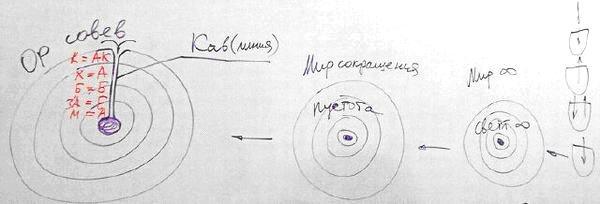 ОР совев
Кав (линия)
К = АК
Х = А
Б = Б
ЗА = Г
М = А
Мир сокращения
пустота
Мир ∞
свет ∞